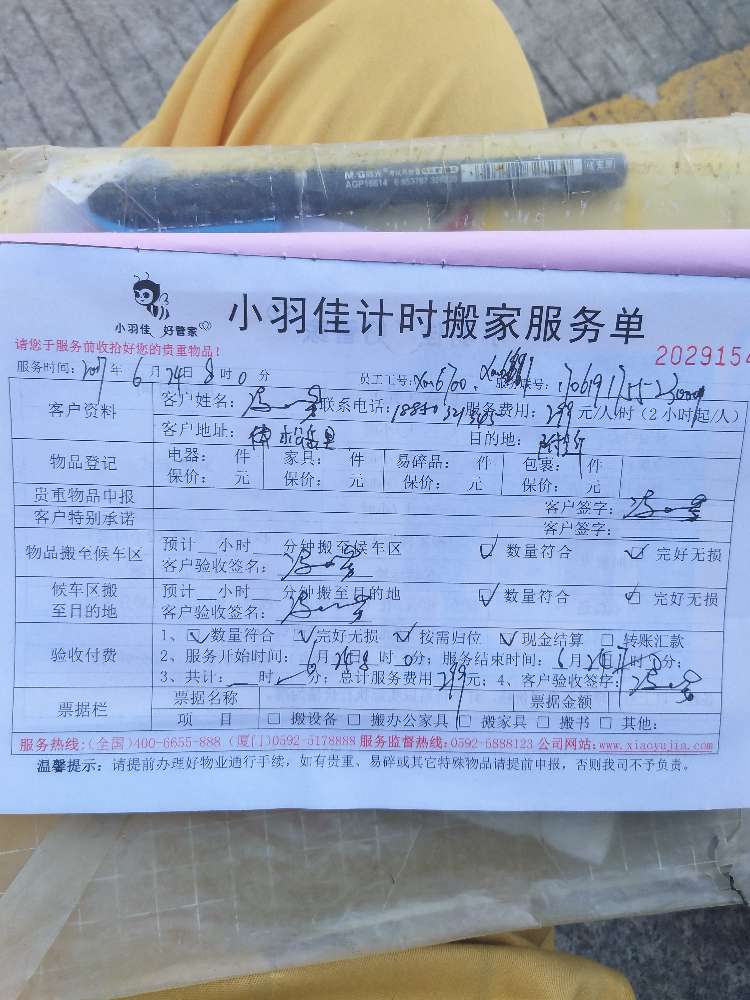 M&G晨光
AGP16614
小羽佳 好管家
小羽佳计时搬家服务单
请您于服务前收拾好您的贵重物品!
2029154
服务时间: 2017年 6 月 24 日 8 时 0 分 员工工号: xm6700
客户资料
客户姓名: 联系电话: 服务费用: 299 元/人/时 (2小时起/人)
客户地址: 目的地:
物品登记
电器: 件 家具: 件 易碎品: 件 包裹: 件
保价: 元 保价: 元 保价: 元 保价: 元
贵重物品申报 客户签字:
客户特别承诺 客户签字:
物品搬至候车区
预计__小时__分钟搬至候车区 数量符合 完好无损
客户验收签名:
候车区搬至目的地
预计__小时__分钟搬至目的地 数量符合 完好无损
客户验收签名:
验收付费
1、 数量符合 完好无损 按需归位 现金结算 转账汇款
2、服务开始时间: 6月24日8时0分; 服务结束时间: 6月24日 时 分;
3、共计: 时 分; 总计服务费用 299 元; 4、客户验收签字:
票据栏
票据名称 票据金额
项 目 搬设备 搬办公家具 搬家具 搬书 其他:
服务热线:(全国)400-6655-888 (厦门)0592-5178888 服务监督热线:0592-5888123 公司网站:www.xiaoyujia.com
温馨提示: 请提前办理好物业通行手续, 如有贵重、易碎或其它特殊物品请提前申报, 否则我司不予负责。